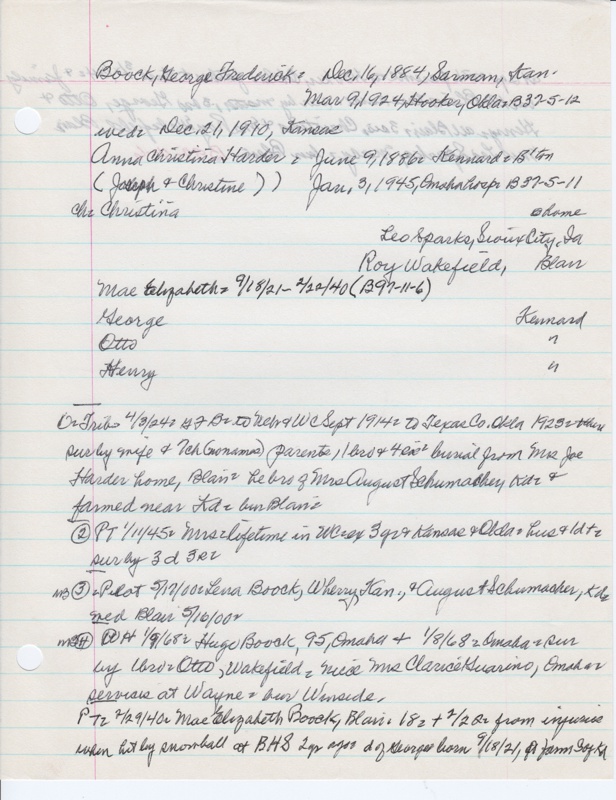 Boock, George Frederick = Dec, 16, 1884, Sarman, Kan.
Mar 9, 1924, Hooker, Okla = B37-5-12
wed = Dec, 21, 1910, Kansas
Anna Christina Harder = June 9, 1886 = Kennard =
(Joseph & Christine) Jan, 3, 1945, Omaha hosp = B37-5-11
ch = Christina home
Leo Sparks, Sioux City, Ia
Roy Wakefield, Blair
Mae Elizabeth = 9/18/21 - 2/22/40 (B97-11-6)
George Kennard
Otto "
Henry "
Trib = 4/3/24 = to Neb & WC Sept 1914 = to Texas Co. Okla 1923 =
sur by wife & 7ch (nonames) parents, 1 bro & 4 sis = burial from Mrs Joe
Harder home, Blair = he bro of Mrs August Schumacher, Kd = &
farmed near Kd = bur Blair =
② PT 1/11/45 = Mrs = lifetime in WC = ex 3 yr & Kansas & Okla = hus & 1d
sur by 3 d 3 s =
③ = Pilot 5/17/00 = Lena Boock, Wherry, Kan., & August Schumacher, Kd =
wed Blair 5/16/00 =
④ 1/9/68 = Hugo Boock, 95, Omaha + 1/8/68 = Omaha = sur
by 1 bro = Otto, Wakefield = niece Mrs Clarice Guarino, Omaha =
services at Wayne = bur Winside.
PT = 2/29/40 = Mae Elizabeth Boock, Blair = 18 = + 2/22 = from injuries
when hit by snowball at BHS 2 yr ago = d of George = born 9/18/21, farm